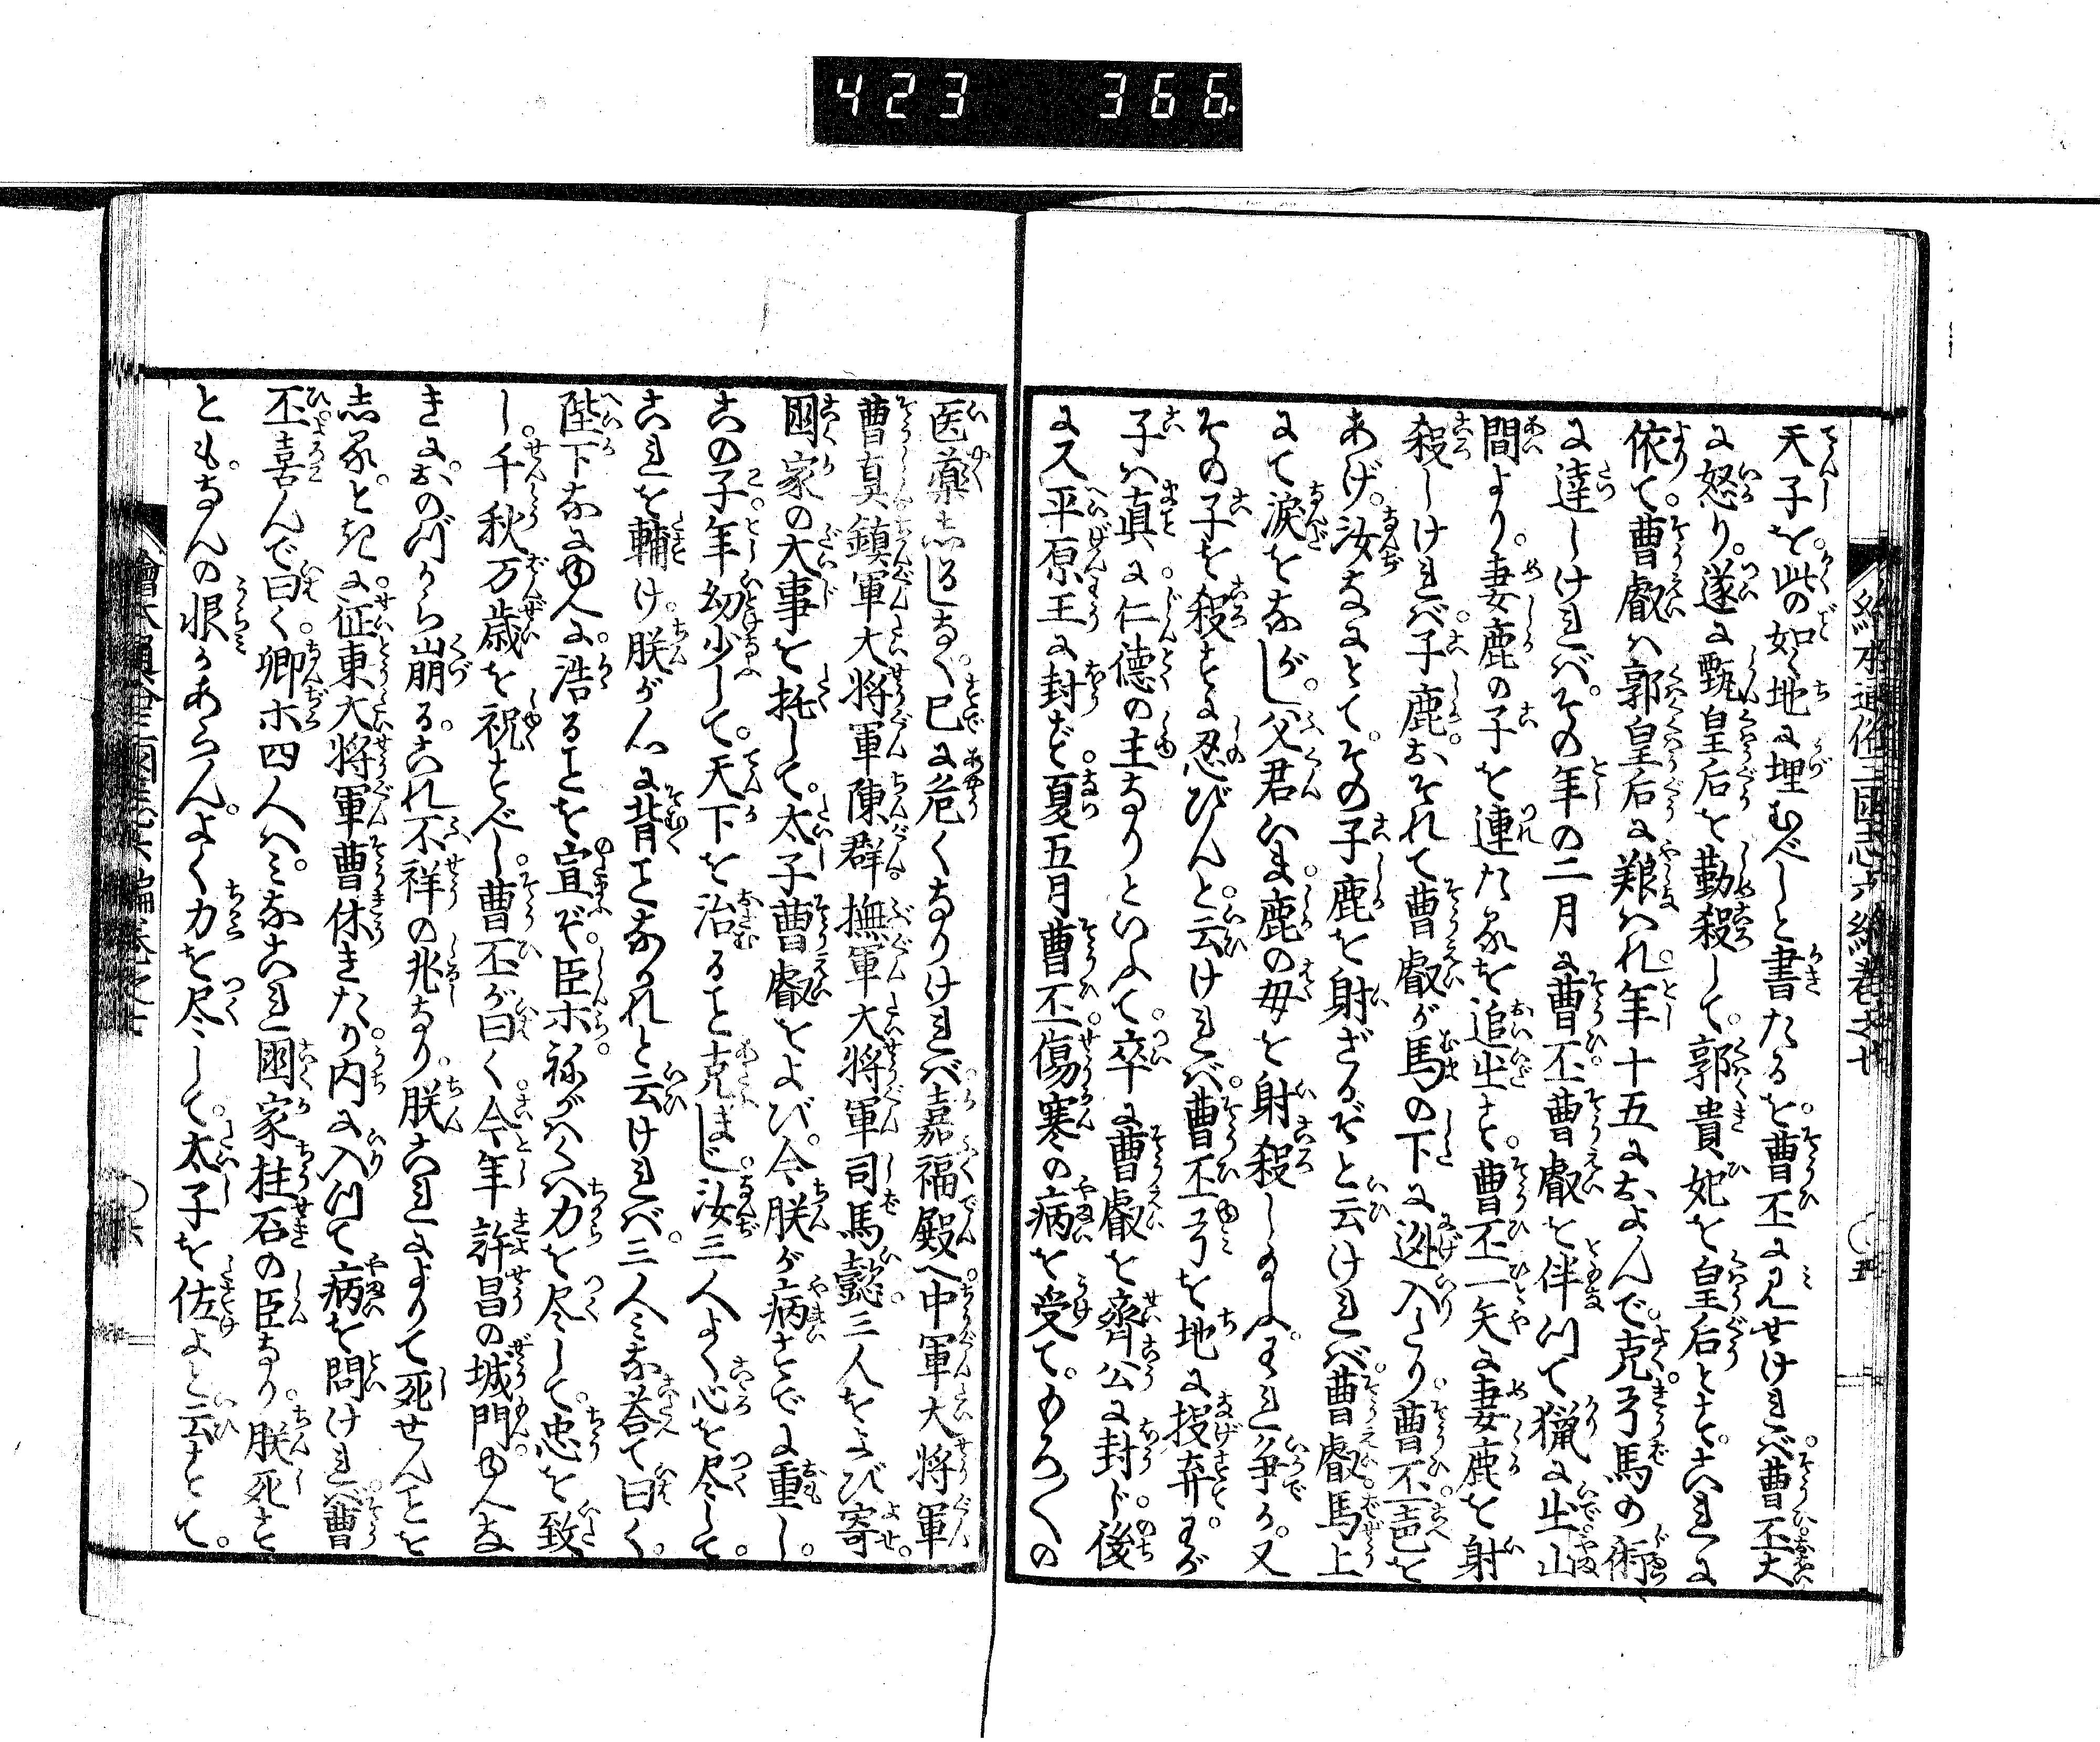 423 366
天子を。此の如く地に埋むべしと書たるを。曹丕に見せければ。曹丕大
に怒り。遂に甄皇后を勒殺して。郭貴妃を皇后とす。これに
依て。曹叡は郭皇后に養はれ。年十五におよんで。克弓馬の術
に達しければ。その年の二月に曹丕。曹叡を伴ひて猟に出。山
間より。妻鹿の子を連たるを追出す。曹丕一矢に妻鹿を射
殺しければ。子鹿おそれて曹叡が馬の下に逃入たり。曹丕声を
あげ。汝なにとて。その子鹿を射ざるぞと云ければ。曹叡馬上
にて涙をながし。父君いま鹿の母を射殺し給ふ。われ争か。又
その子を殺すに忍びんと。云ければ。曹丕弓を地に投弃。わが
子は真に。仁徳の主なりといふて。卒に曹叡を齊公に封じ。後
に又平原王に封ず。夏五月曹丕。傷寒の病を受て。もろくの
医薬しるしなく。已に危くなりければ。嘉福殿へ中軍大将軍
曹真。鎮軍大将軍陳群。撫軍大将軍司馬懿。三人をよび寄。
国家の大事を托して。太子曹叡をよび。今朕が病すでに重し。
この子年幼少して。天下を治ること克まじ。汝三人よく心を尽して。
これを輔け。朕が心に背ことなかれと云ければ。三人みな荅て曰く。
陛下なにゆへに。浩ることを宣ぞ。臣ホ祢がはくは力を尽して。忠を致
し。千秋万歳を祝すべし。曹丕が曰く。今年許昌の城門。ゆへな
きに。おのづから崩る。これ不祥の兆なり。朕これによりて死せんことを
しる。とき に。征東大将軍曹休きたり。内に入て病を問ければ。曹
丕喜んで曰く。卿ホ四人は。みなこれ国家柱石の臣なり。朕死す
とも。なんの恨かあらん。よく力を尽して。太子を佐よと云すとて。